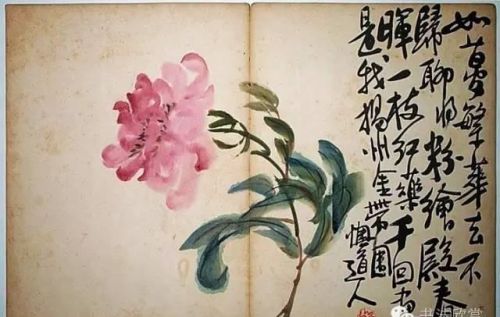 如夢繁華去不
歸聊將粉繪殿春
暉一枝紅藥千回看
是我揚州金帶圍
懊道人
书法欣赏